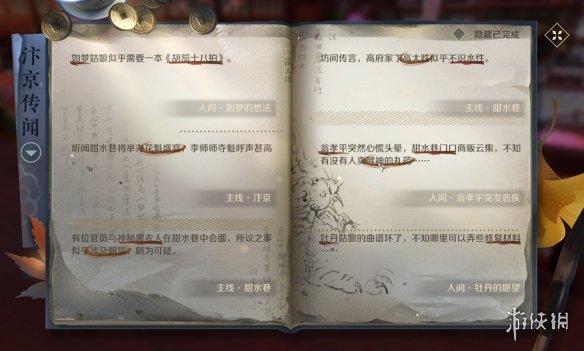 汴京传闻
隐藏已完成
如梦姑娘似乎需要一本《胡笳十八拍》。
人间·如梦的想法
听闻甜水巷将举办花魁盛宴，李师师夺魁呼声甚高。
主线·汴京
有位官员与神秘黑衣人在甜水巷中会面，所议之事
似乎涉及朝堂，颇为可疑。
主线·甜水巷
坊间传言，高府家丁高大胜似乎不识水性。
主线·甜水巷
翁孝平突然心慌头晕，甜水巷门口商贩云集，不知
有没有人卖醒神的丸药……
人间·翁孝平突发恶疾
牡丹姑娘的曲谱坏了，不知哪里可以弄些修复材料
……
人间·牡丹的愿望
游侠网